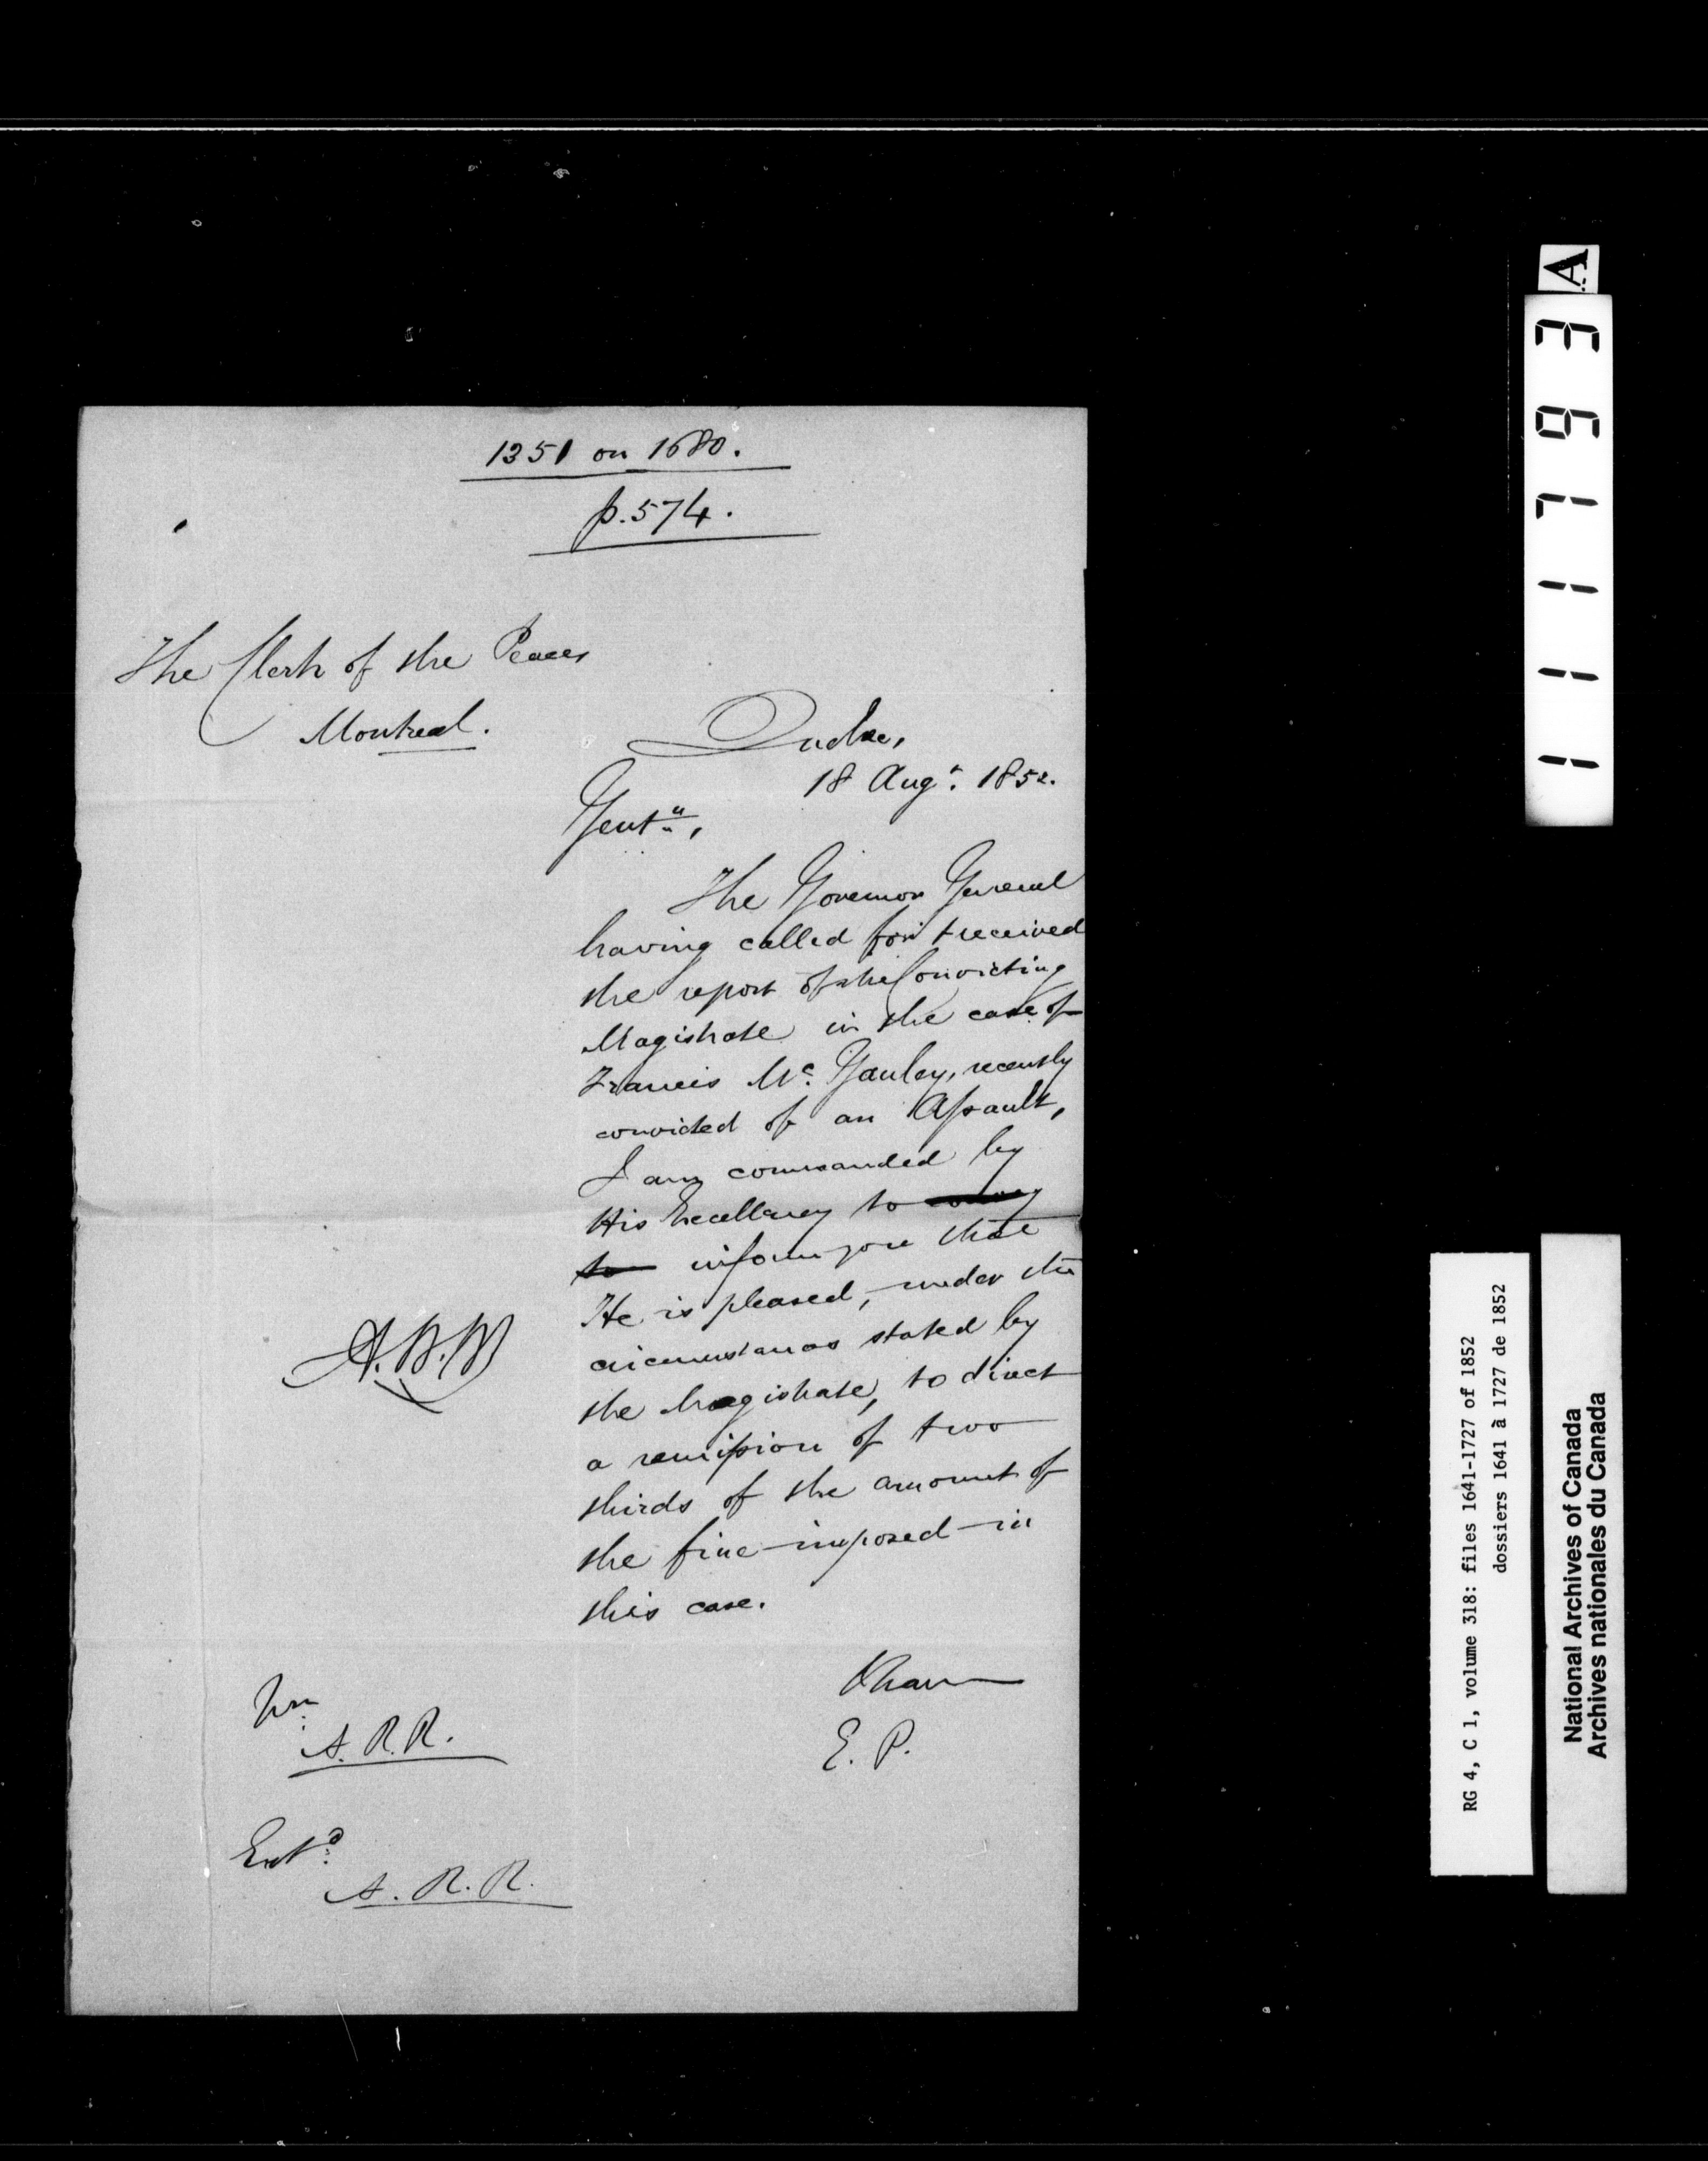 1351 on 1680.
p. 574.
The Clerk of the Peace,
Montreal.
Quebec,
18 Augt. 1852.
Gentn.,
The Governor General
having called for & received
the report of the Convicting
Magistrate in the case of
Francis Mc. Ganley, recently
convicted of an Assault,
I am commanded by
His Excellency to convey
to inform you that
He is pleased, under the
circumstances stated by
the Magistrate, to direct
a remission of two
thirds of the amount of
the fine imposed in
this case.
A.N.M
I have
E. P.
Wn.
A. R. R.
Entd.
A. R. R.
111793
A
RG 4, C 1, volume 318: files 1641-1727 of 1852
dossiers 1641 à 1727 de 1852
National Archives of Canada
Archives nationales du Canada